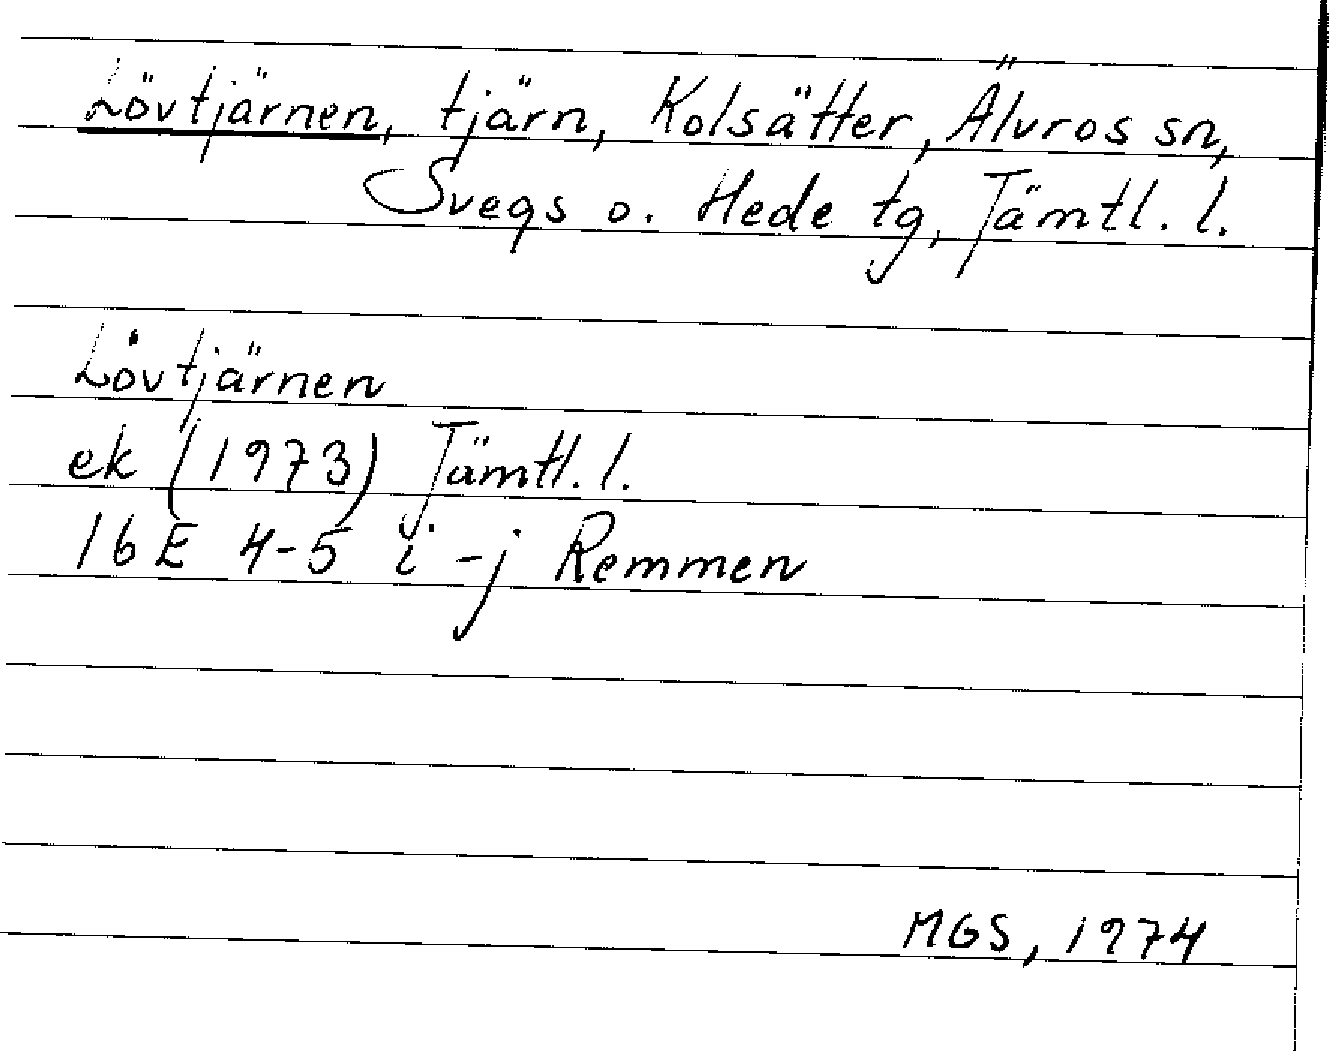 Lövtjärnen, tjärn, Kolsätter, Älvros sn,
Svegs o. Hede tg, Jämtl. l.
Lövtjärnen
ek (1973) Jämtl. l.
16E 4-5 i-j Remmen
MGS, 1974